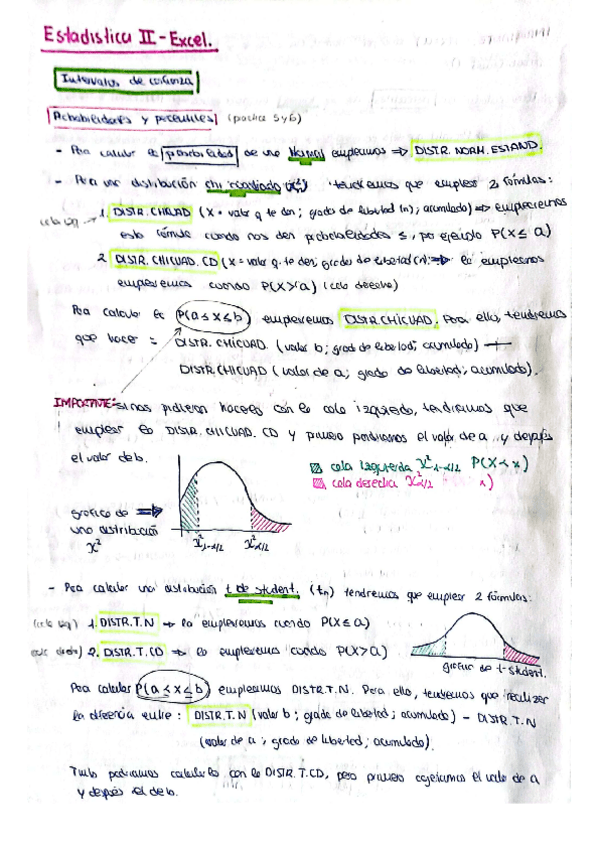 Estadística II - Excel.
Intervalos de confianza
Probabilidades y percentiles (practica 5 y 6)
- Para calcular las probabilidades de una Normal empleamos ⇒ DISTR. NORM. ESTAND.
- Para una distribución chi cuadrado (χ²) tendremos que emplear 2 fórmulas:
(cola izq) → 1. DISTR. CHICUAD (X = valor q te dan; grados de libertad (n); acumulado) ⇒ emplearemos
esta fórmula cuando nos den probabilidades ≤, por ejemplo P(X ≤ a)
2. DISTR. CHICUAD. CD (X = valor q. te den; grado de libertad (n) ⇒ la emplearemos
emplearemos cuando P(X > a) (cola derecha)
Para calcular la P(a ≤ x ≤ b) emplearemos DISTR. CHICUAD. Para ello, tendremos
que hacer = DISTR. CHICUAD. (valor b; grad de libertad; acumulado) —
DISTR. CHICUAD (valor de a; grado de libertad; acumulado).
IMPORTANTE: si nos pidieran hacerlo con la cola izquierda, tendríamos que
emplear la DISTR. CHICUAD. CD y primero pondríamos el valor de a y después
el valor de b.
cola izquierda χ² 1-α/2 P(X < x)
cola derecha χ² α/2 x)
grafica de ⇒
una distribución
χ²
χ² 1-α/2 χ² α/2
- Para calcular una distribución t de student. (tn) tendremos que emplear 2 fórmulas:
(cola izq) 1. DISTR. T. N ⇒ la emplearemos cuando P(X ≤ a)
2. DISTR. T. CD ⇒ la emplearemos cuando P(X > a)
grafica de t-student.
Para calcular P(a ≤ x ≤ b) emplearemos DISTR. T. N. Para ello, tendremos que realizar
la diferencia entre: DISTR. T. N (valor b; grado de libertad; acumulado) - DISTR. T. N
(valor de a; grado de libertad; acumulado).
Tmb podríamos calcularla con la DISTR. T. CD, pero primero cogeríamos el valor de a
y después el de b.